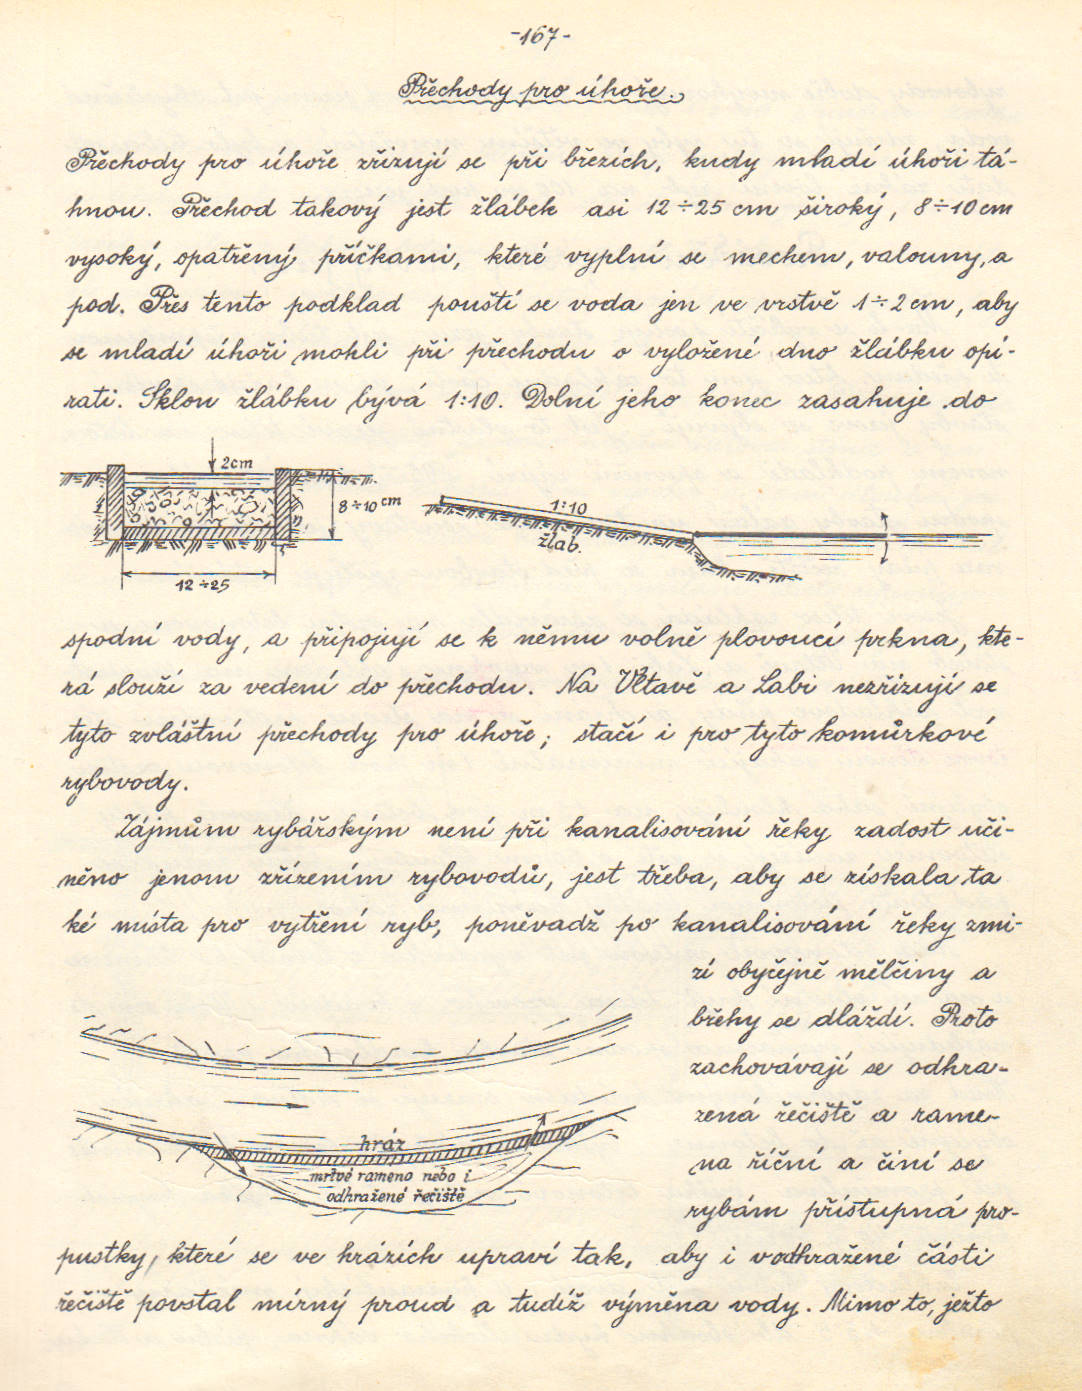 -167-
Přechody pro úhoře.
Přechody pro úhoře zřizují se při březích, kudy mladí úhoři tá-
hnou. Přechod takový jest žlábek asi 12÷25 cm široký, 8÷10 cm
vysoký, opatřený příčkami, které vyplní se mechem, valouny, a
pod. Přes tento podklad pouští se voda jen ve vrstvě 1÷2 cm, aby
se mladí úhoři mohli při přechodu o vyložené dno žlábku opí-
rati. Sklon žlábku bývá 1:10. Dolní jeho konec zasahuje do
2cm
8÷10 cm
12÷25
1:10
žlab.
spodní vody, a připojují se k němu volně plovoucí prkna, kte-
rá slouží za vedení do přechodu. Na Vltavě a Labi nezřizují se
tyto zvláštní přechody pro úhoře; stačí i pro tyto komůrkové
rybovody.
Zájmům rybářským není při kanalisování řeky zadost uči-
něno jenom zřízením rybovodů, jest třeba, aby se získala ta
ké místa pro vytření ryb, poněvadž po kanalisování řeky zmi-
zí obyčejně mělčiny a
břehy se dláždí. Proto
zachovávají se odhra-
zená řečiště a rame-
na říční a činí se
rybám přístupná pro-
hráz
mrtvé rameno nebo i
odhražené řečiště
pustky, které se ve hrázích upraví tak, aby i v odhražené části
řečiště povstal mírný proud a tudíž výměna vody. Mimo to, ježto